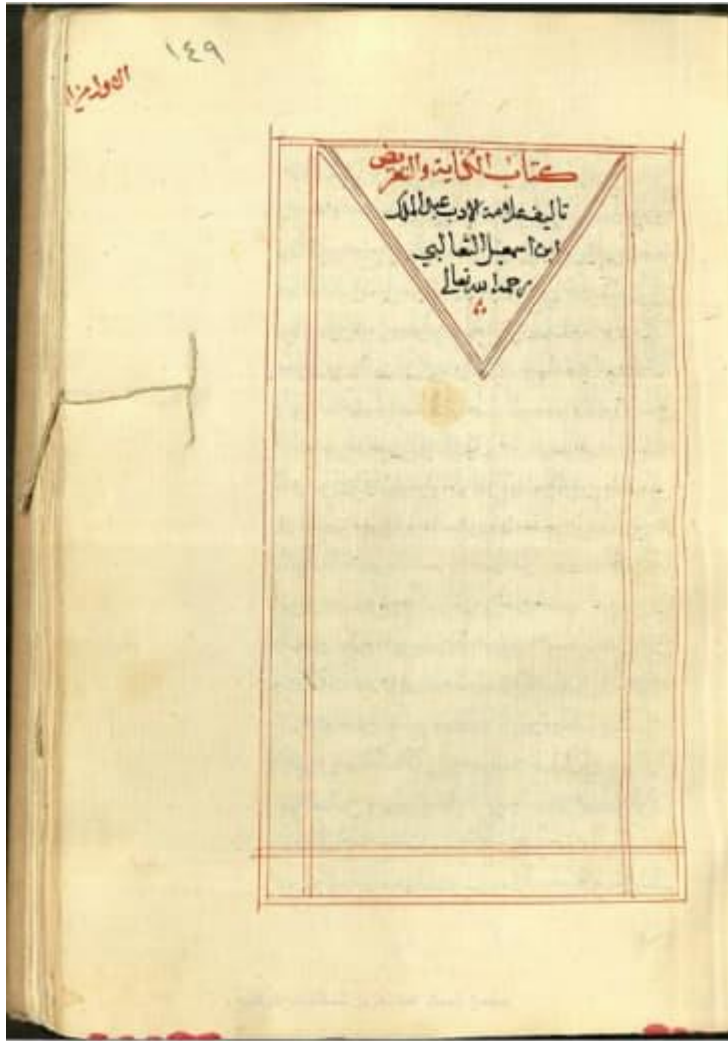 ١٤٩
كتاب الكناية والتعريض
تاليف علامة الادب عبد الملك
ابن اسمعيل الثعالبي
رحمه الله تعالى